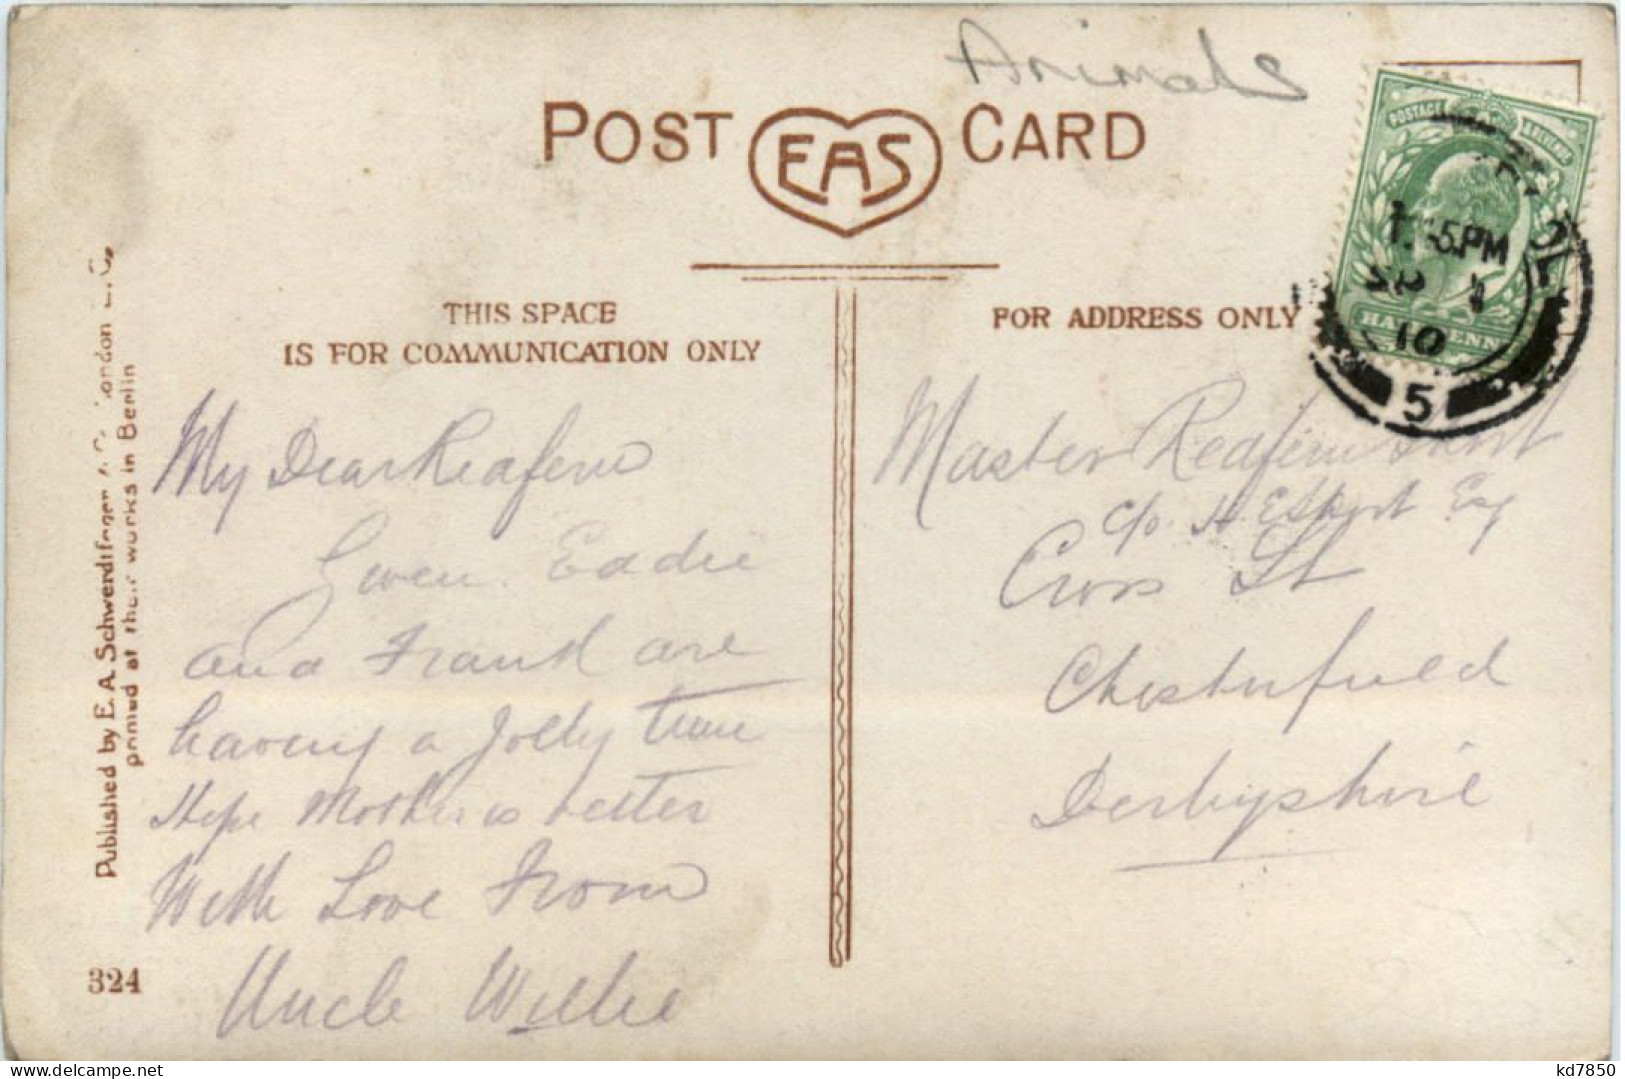 Animals
POST EAS CARD
POSTAGE & REVENUE
PM
10
HALFPENNY
5
THIS SPACE
IS FOR COMMUNICATION ONLY
FOR ADDRESS ONLY
My Dear Redfern
Gwen. Eadie
and Frank are
having a Jolly time
Hope Mother is better
With Love From
Uncle Willie
Master Redfern
c/o H Esq
Cross St
Chesterfield
Derbyshire
Published by E. A. Schwerdtfeger & Co London E. C.
printed at their works in Berlin
324
kd7850